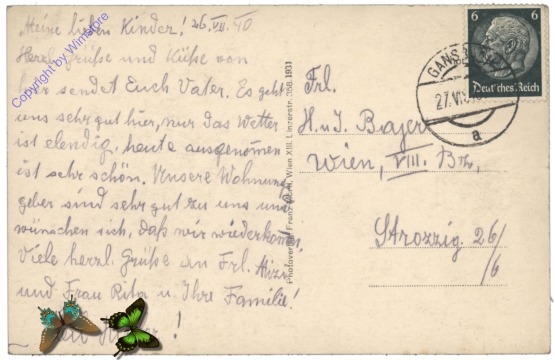 Meine lieben Kinder! 26.VII.40
Herzl. Grüße und Küße von
hier sendet Euch Vater. Es geht
uns sehr gut hier, nur das Wetter
ist elendig, heute ausgenomen
ist sehr schön. Unsere Wohnung
geber sind sehr gut zu uns und
wünschen sich, daß wir wiederkom̄en,
Viele herzl. Grüße an Frl.
und Frau Rita u. Ihre Familie!
!
Copyright by Wimstore
Photoverlag Franz Wien XIII, Linzerstr. 1931
6 6
Deutsches Reich
27.VII
a
Frl.
H. u. J. Bayer
Wien, VIII. Bez.,
Strozzig. 26/
/6